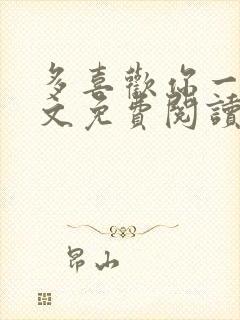 多喜歡你一
文免費閱讀
昂山